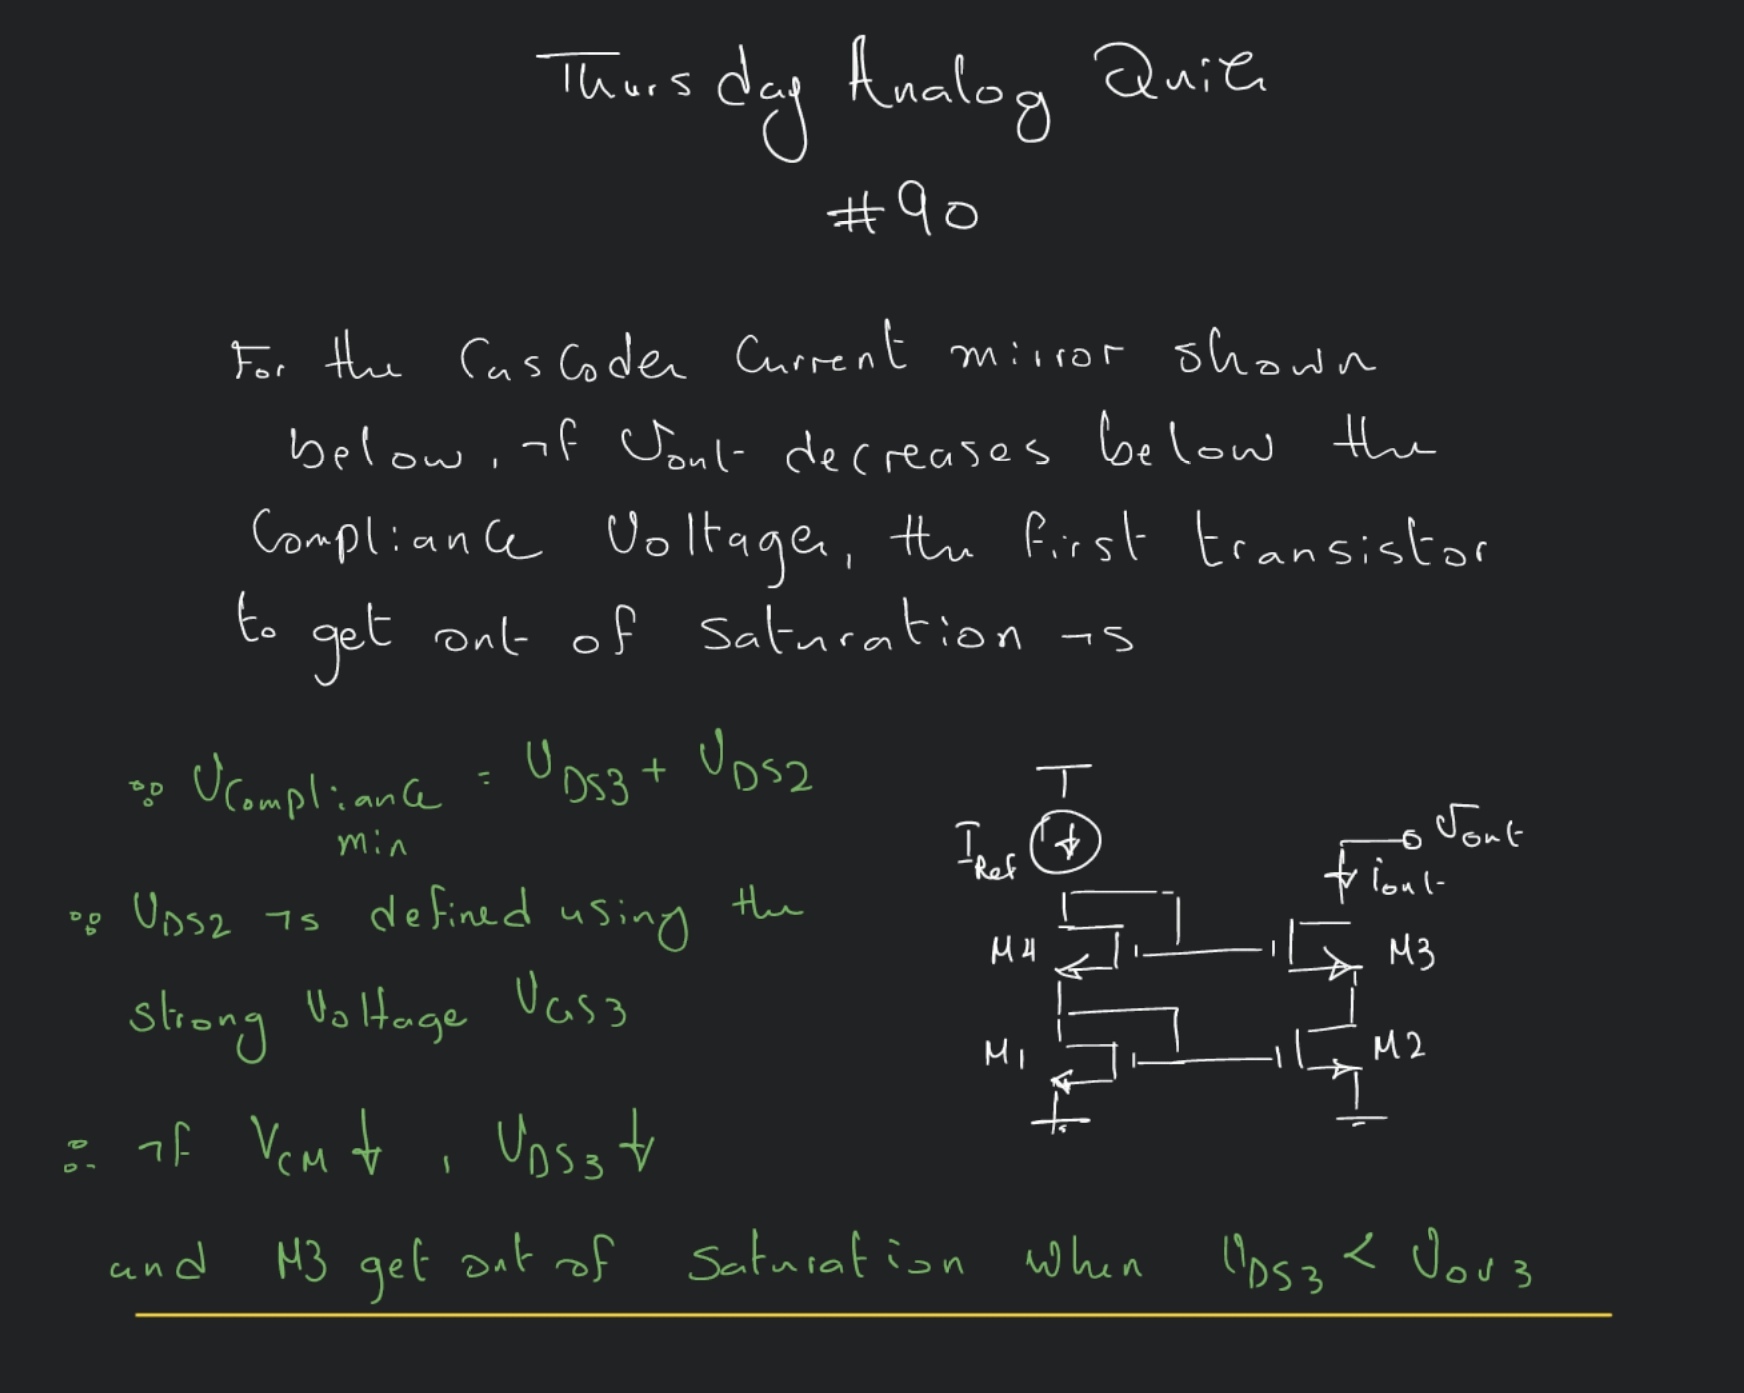 Thursday Analog Quiz
#90
For the Cascode Current mirror shown
below, if Vout decreases below the
Compliance Voltage, the first transistor
to get out of saturation is
∵ VCompliance min = VDS3 + VDS2
∵ VDS2 is defined using the
strong Voltage VGS3
∴ if VCM ↓ , VDS3 ↓
and M3 get out of saturation when VDS3 < Vov3
IRef
Vout
iout
M4
M3
M1
M2